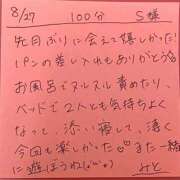 8/27 100分 S様
先日ぶりに会えて嬉しかった!
パンの差し入れもありがとう
お風呂でヌルヌル責めたり、
ベッドで2人とも気持ちよく
なって、添い寝して、凄く
今回も楽しかった♡また一緒
に遊ぼうね(^o^)
みと